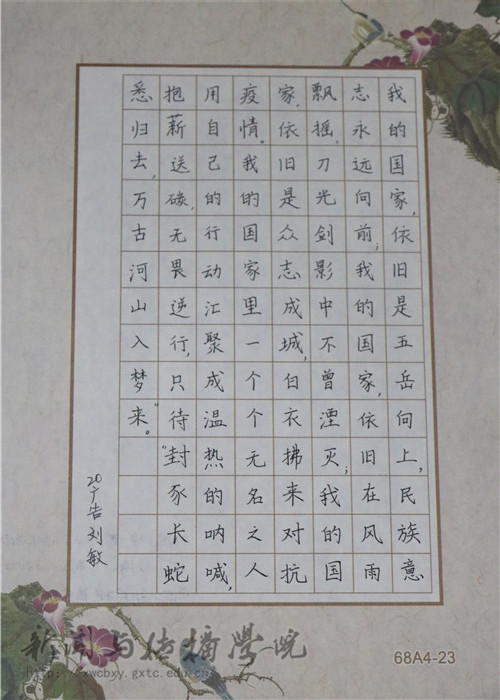 我的国家,依旧是五岳向上,民族意
志永远向前;我的国家,依旧在风雨
飘摇,刀光剑影中不曾湮灭;我的国
家,依旧是众志成城,白衣拂来对抗
疫情。我的国家里一个个无名之人
用自己的行动汇聚成温热的呐喊,
抱薪送碳,无畏逆行,只待“封豕长蛇
悉归去,万古河山入梦来。”
20广告刘敏
新闻与传播学院
http://xwcbxy.gxtc.edu.cn/
68A4-23